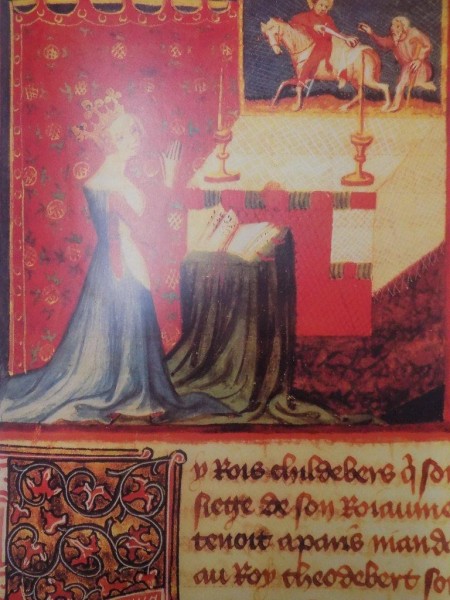 y Rois childebers q̃ son
siege de son Roiaume
tenoit a paris manda
au Roy theodebert son